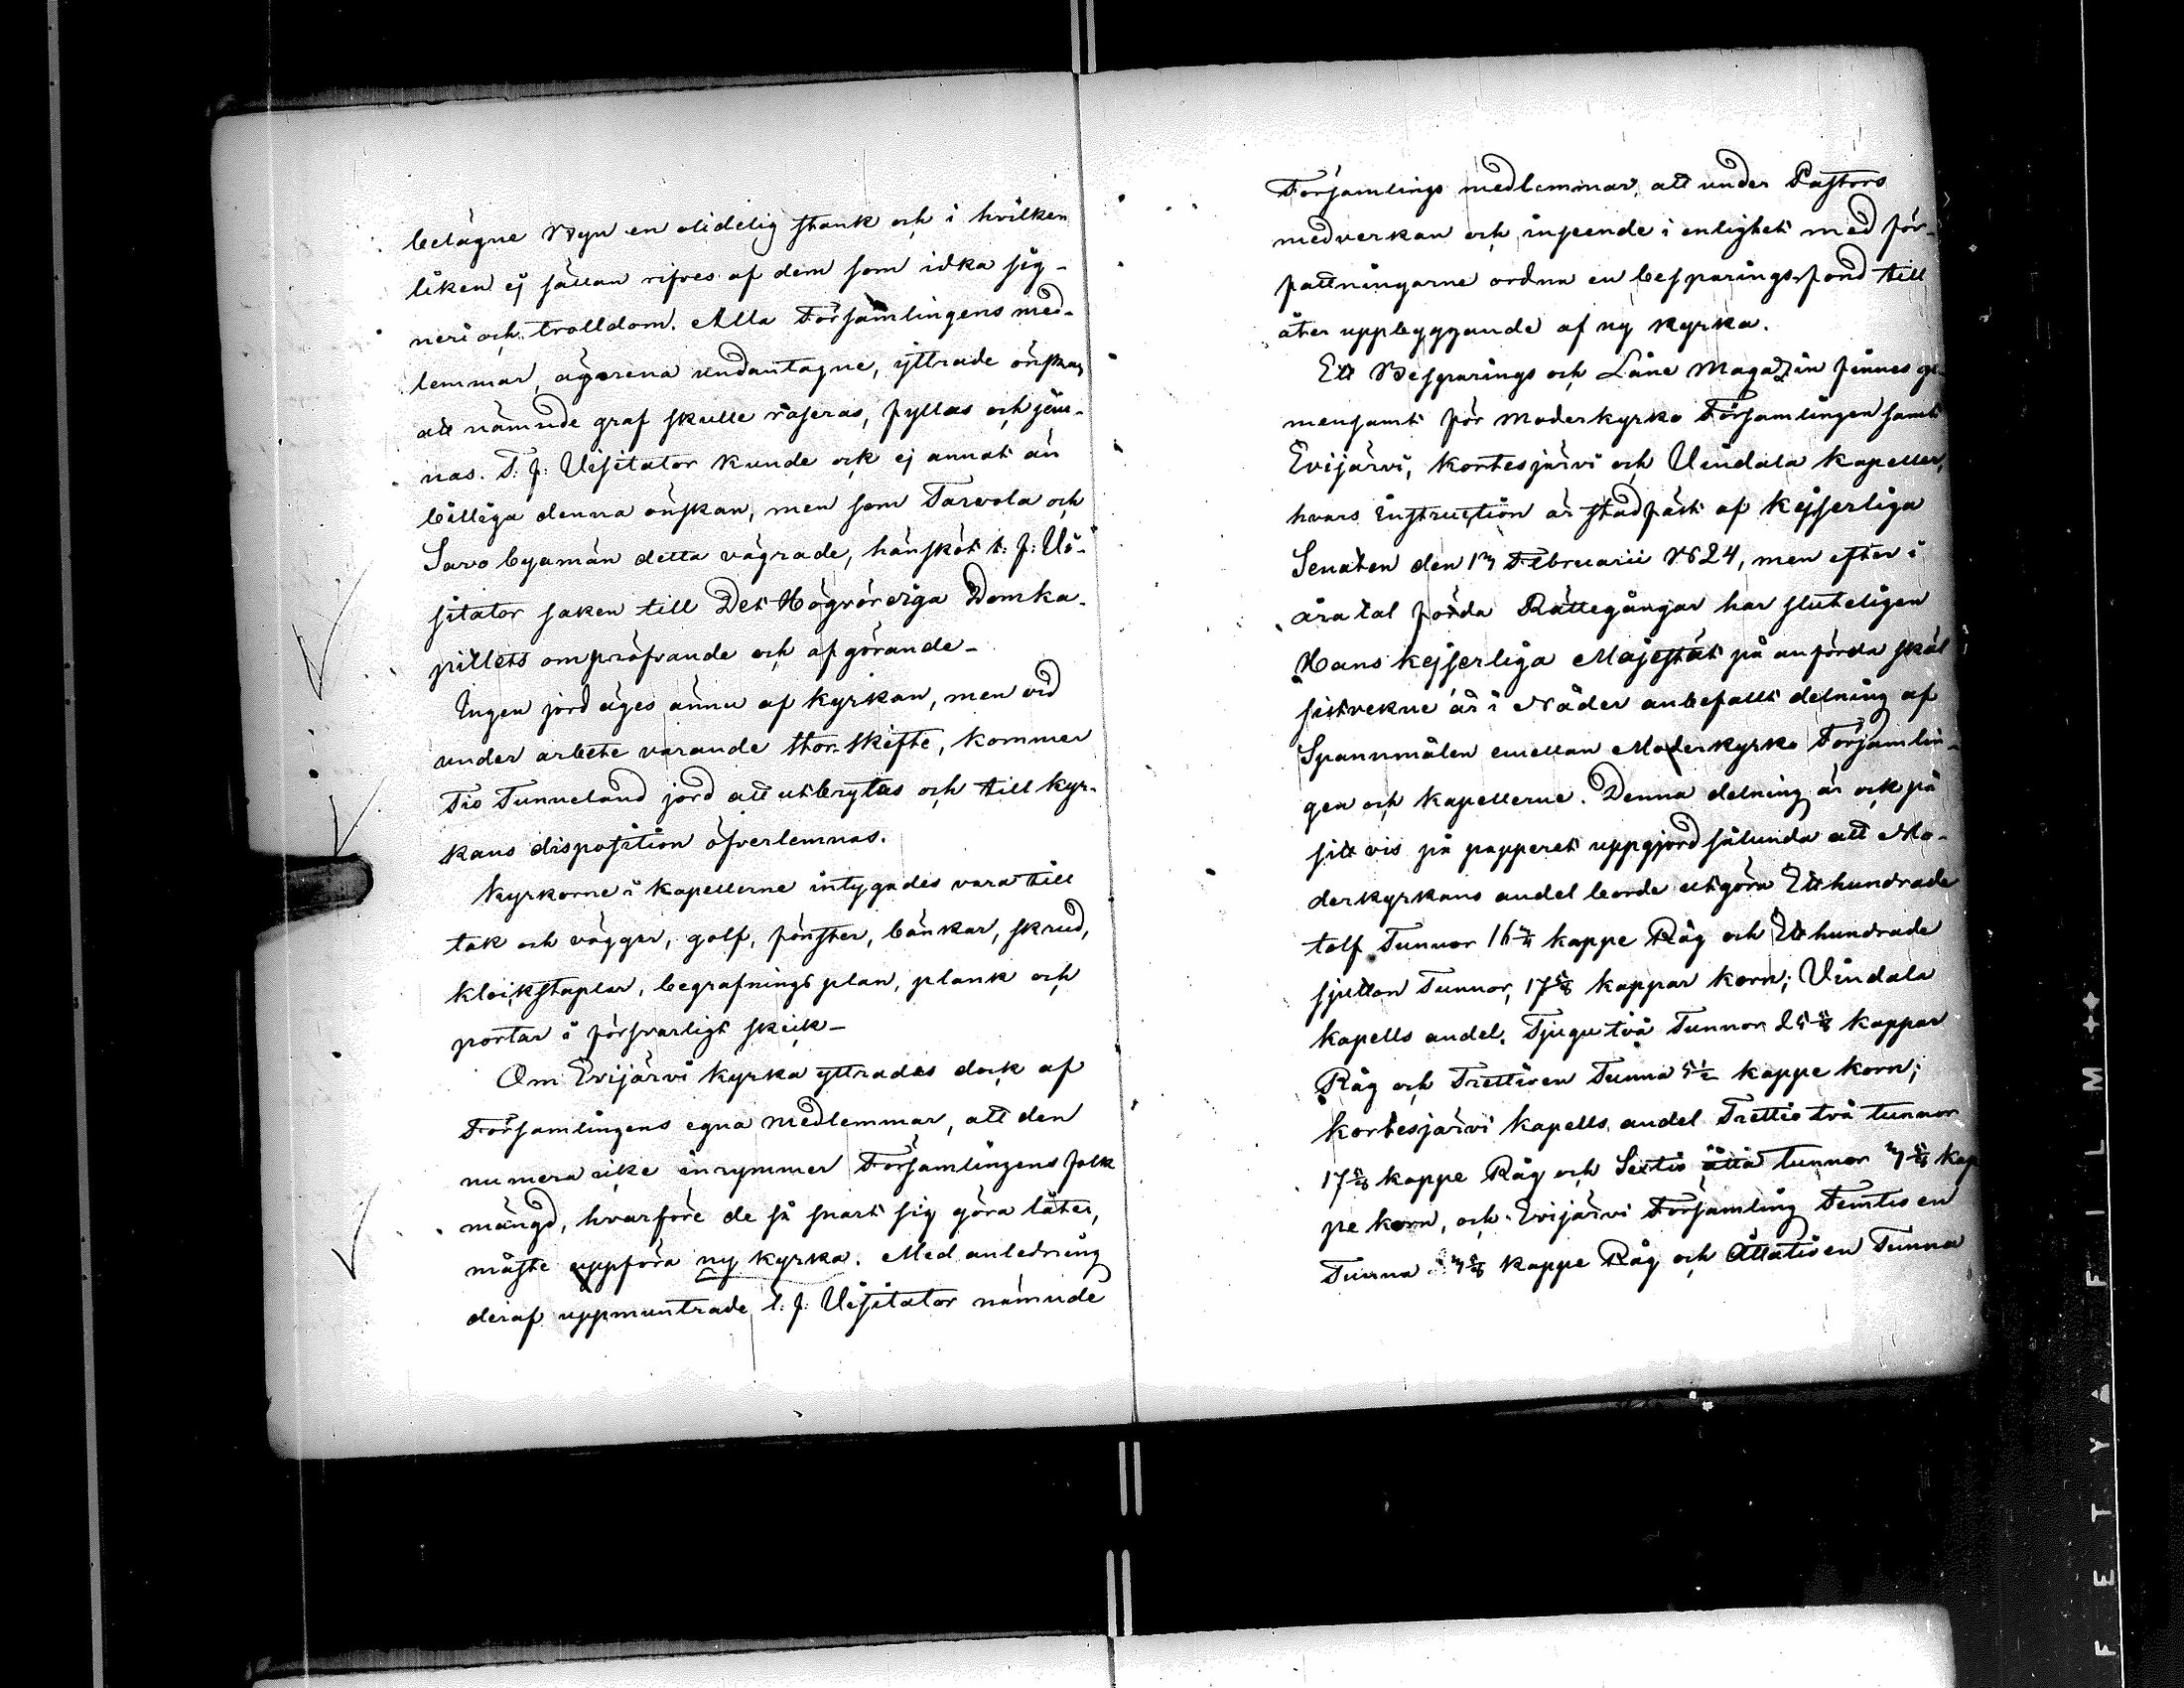 belägne Byn en olidelig stank och i hvilken
liken ej sällan rifves af dem som idka sig-
neri och trolldom. Alla Församlingens med-
lemmar, ägarena undantagne, yttrade önskan
att nämnde graf skulle raseras, fyllas och jäm-
nas. T. f. Visitator kunde ock ej annat än
billiga denna önskan, men som Tarvola och
Savo byamän detta vägrade, hänsköt t. f. Vi-
sitator saken till Det Högvördiga Domka-
pitlets ompröfvande och afgörande-
Ingen jord äges ännu af kyrkan, men vid
under arbete varande storskifte, kommer
Tio Tunneland jord att utbrytas och till kyr-
kans disposition öfverlemnas.
Kyrkorne i kapellerne intygades vara till
tak och väggar, golf, fönster, bänkar, skrud,
klockstaplar, begrafningsplan, plank och
portar i försvarligt skick-
Om Evijärvi kyrka yttrades dock af
Församlingens egna medlemmar, att den
numera icke inrymmer Församlingens folk
mängd, hvarföre de så snart sig göra låter,
måste uppföra ny kyrka. Med anledning
deraf uppmuntrade t. f. Visitator nämnde
Församlings medlemmar, att under Pastors
medverkan och inseende i enlighet med för-
fattningarne ordna en besparings-fond till
åter uppbyggande af ny kyrka.
Ett Besparings och Låne Magazin finnes ge-
mensamt för moderkyrko Församlingen samt
Evijärvi, Kortesjärvi och Vindala kapeller,
hvars instruction är stadfäst af Kejserliga
Senaten den 17 Februarii 1824, men efter i
åratal förda Rättegångar har sluteligen
Hans Kejserliga Majestät på anförda skäl
sistvekne år i Nåder anbefallt delning af
Spannmålen emellan Moderkyrko Församlin-
gen och Kapellerne. Denna delning är ock på
sitt vis på papperet uppgjord sålunda att Mo-
derkyrkans andel borde utgöra Ett hundrade
tolf Tunnor 16 kappe Råg och Ett hundrade
sjutton Tunnor, 17 5/8 kappar korn; Vindala
kapells andel. Tjugu två Tunnor kappar
Råg och Trettioen Tunna 5 1/2 kappe korn;
Kortesjärvi kapells andel Trettio två tunnor
17 5/8 kappe Råg och Sextio åtta tunnor kap
pe korn, och Evijärvi Församling Femtioen
Tunna kappe Råg och Åttatioen Tunna
FETYÅFILM